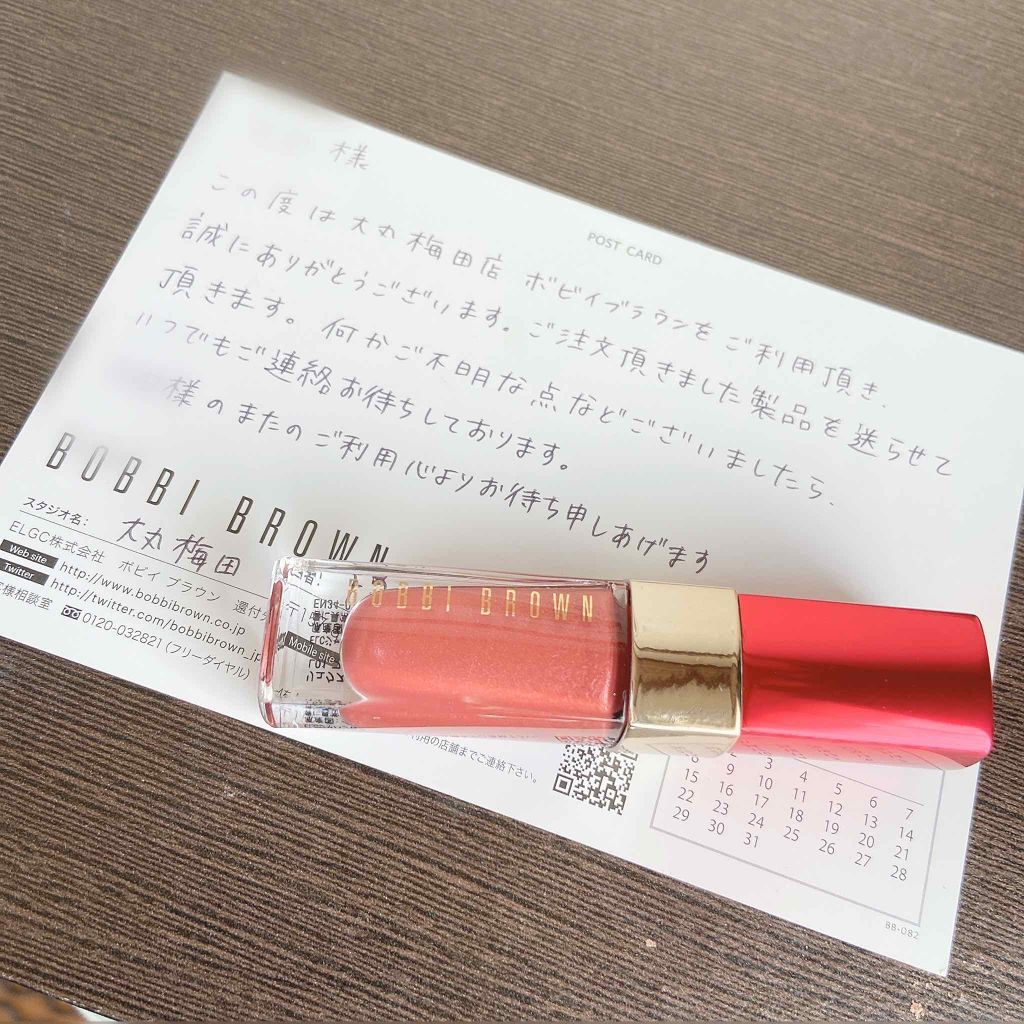 様
POST CARD
この度は大丸梅田店 ボビイブラウンをご利用頂き、
誠にありがとうございます。ご注文頂きました製品を送らせて
頂きます。何かご不明な点などございましたら、
いつでもご連絡お待ちしております。
様のまたのご利用心よりお待ち申しあげます
BOBBI BROWN
スタジオ名: 大丸梅田
ELGC株式会社 ボビイ ブラウン
Web site http://www.bobbibrown.co.jp
Twitter http://twitter.com/bobbibrown_jp
様相談室 0120-032821 (フリーダイヤル)
Mobile site
BOBBI BROWN
利用の店舗までご連絡下さい。
3 4 5 6 7
8 9 10 11 12 13 14
15 16 17 18 19 20 21
22 23 24 25 26 27 28
29 30 31
BB-082